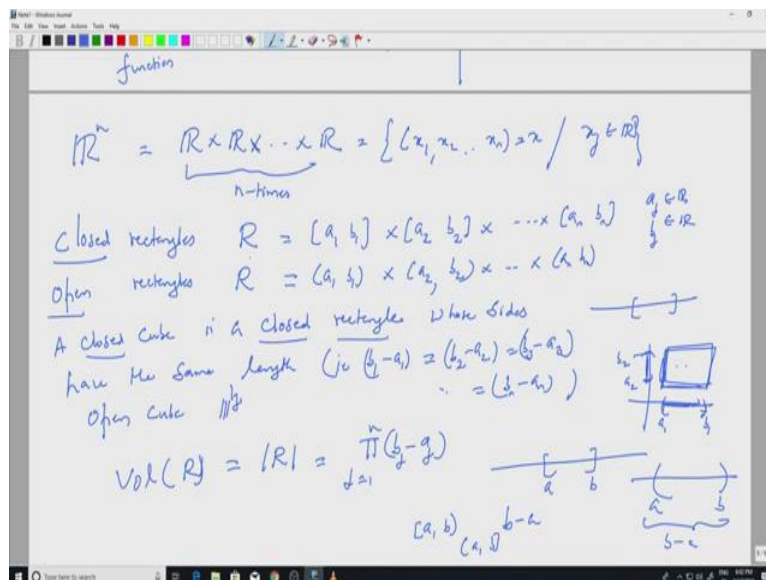 Note1 - Windows Journal
File Edit View Insert Actions Tools Help
function
ℝⁿ = ℝ × ℝ × ··· × ℝ = {(x₁, x₂ .. xₙ) = x / xⱼ ∈ ℝ}
n-times
Closed rectangles R = [a₁ b₁] × [a₂ b₂] × ··· × [aₙ bₙ] aⱼ ∈ ℝ
bⱼ ∈ ℝ
Open rectangles R = (a₁ b₁) × (a₂, b₂) × ·· × (aₙ bₙ)
A closed cube is a closed rectangles whose sides
have the same length (ie (b₁-a₁) = (b₂-a₂) = (b₃-a₃)
·· = (bₙ-aₙ))
b₂
a₂
a₁ b₁
Open cube |||ly
Vol(R) = |R| = ∏ⁿⱼ₌₁ (bⱼ - aⱼ)
a b
a b
[a, b)
(a, b) b-a
b-a
Type here to search